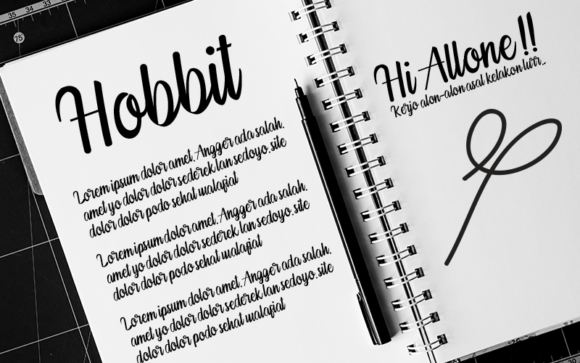 Hobbit
Lorem ipsum dolor amel. Angger ada salah,
amel yo dolor dolor sederek lan sedoyo. site
dolor dolor podo sehal walafiat
Lorem ipsum dolor amel. Angger ada salah,
amel yo dolor dolor sederek lan sedoyo. site
dolor dolor podo sehal walafiat
Lorem ipsum dolor amel. Angger ada salah,
amel yo dolor dolor sederek lan sedoyo. site
dolor dolor podo sehal walafiat
Hi Allone !!
Kerjo alon-alon asal kelakon
35
34
33
75